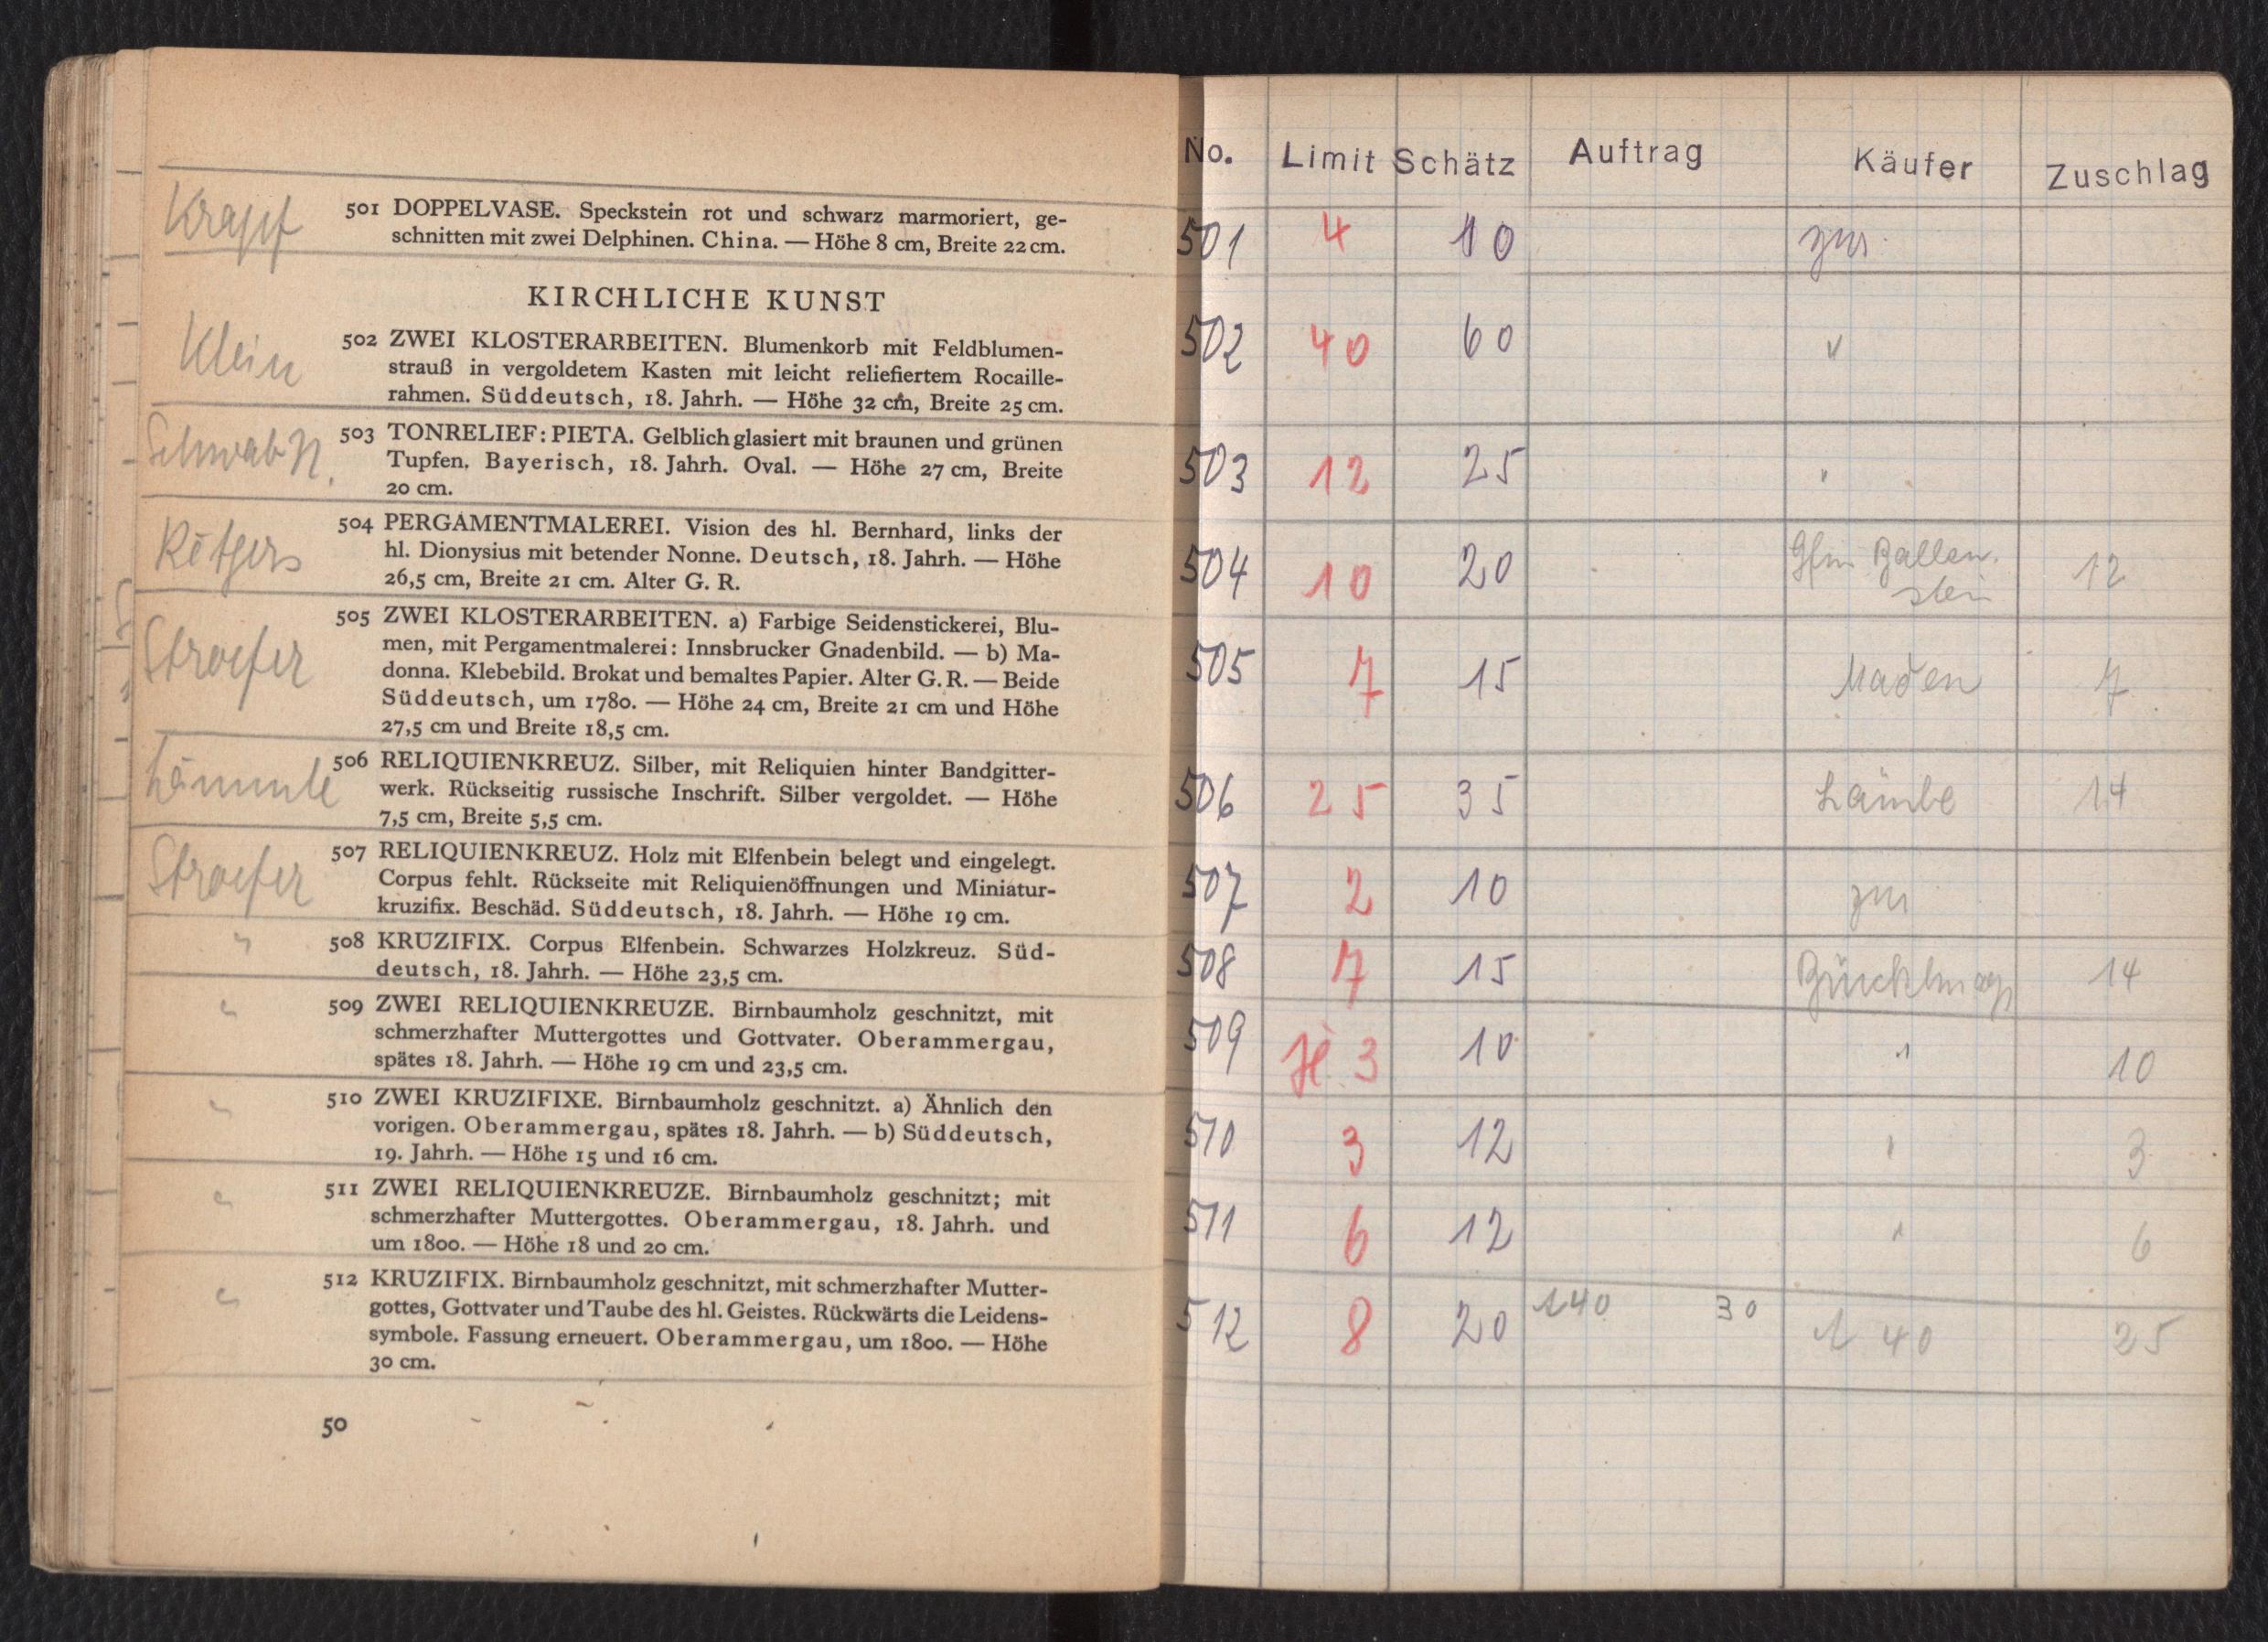 Krapf
501 DOPPELVASE. Speckstein rot und schwarz marmoriert, ge-
schnitten mit zwei Delphinen. China. — Höhe 8 cm, Breite 22 cm.
KIRCHLICHE KUNST
Klein
502 ZWEI KLOSTERARBEITEN. Blumenkorb mit Feldblumen-
strauß in vergoldetem Kasten mit leicht reliefiertem Rocaille-
rahmen. Süddeutsch, 18. Jahrh. — Höhe 32 cm, Breite 25 cm.
Schwab N.
503 TONRELIEF: PIETA. Gelblich glasiert mit braunen und grünen
Tupfen. Bayerisch, 18. Jahrh. Oval. — Höhe 27 cm, Breite
20 cm.
504 PERGAMENTMALEREI. Vision des hl. Bernhard, links der
hl. Dionysius mit betender Nonne. Deutsch, 18. Jahrh. — Höhe
26,5 cm, Breite 21 cm. Alter G. R.
Stroefer
505 ZWEI KLOSTERARBEITEN. a) Farbige Seidenstickerei, Blu-
men, mit Pergamentmalerei: Innsbrucker Gnadenbild. — b) Ma-
donna. Klebebild. Brokat und bemaltes Papier. Alter G. R. — Beide
Süddeutsch, um 1780. — Höhe 24 cm, Breite 21 cm und Höhe
27,5 cm und Breite 18,5 cm.
Lämmle
506 RELIQUIENKREUZ. Silber, mit Reliquien hinter Bandgitter-
werk. Rückseitig russische Inschrift. Silber vergoldet. — Höhe
7,5 cm, Breite 5,5 cm.
Stroefer
507 RELIQUIENKREUZ. Holz mit Elfenbein belegt und eingelegt.
Corpus fehlt. Rückseite mit Reliquienöffnungen und Miniatur-
kruzifix. Beschäd. Süddeutsch, 18. Jahrh. — Höhe 19 cm.
" 508 KRUZIFIX. Corpus Elfenbein. Schwarzes Holzkreuz. Süd-
deutsch, 18. Jahrh. — Höhe 23,5 cm.
" 509 ZWEI RELIQUIENKREUZE. Birnbaumholz geschnitzt, mit
schmerzhafter Muttergottes und Gottvater. Oberammergau,
spätes 18. Jahrh. — Höhe 19 cm und 23,5 cm.
" 510 ZWEI KRUZIFIXE. Birnbaumholz geschnitzt. a) Ähnlich den
vorigen. Oberammergau, spätes 18. Jahrh. — b) Süddeutsch,
19. Jahrh. — Höhe 15 und 16 cm.
" 511 ZWEI RELIQUIENKREUZE. Birnbaumholz geschnitzt; mit
schmerzhafter Muttergottes. Oberammergau, 18. Jahrh. und
um 1800. — Höhe 18 und 20 cm.
" 512 KRUZIFIX. Birnbaumholz geschnitzt, mit schmerzhafter Mutter-
gottes, Gottvater und Taube des hl. Geistes. Rückwärts die Leidens-
symbole. Fassung erneuert. Oberammergau, um 1800. — Höhe
30 cm.
50
No. Limit Schätz Auftrag Käufer Zuschlag
501 4 10 zur.
502 40 60 "
503 12 25 "
504 10 20 Ballen- 12
stein
505 7 15 7
506 25 35 14
507 2 10 zur
508 7 15 14
509 H 3 10 " 10
510 3 12 " 3
511 6 12 " 6
512 8 20 30 40 25